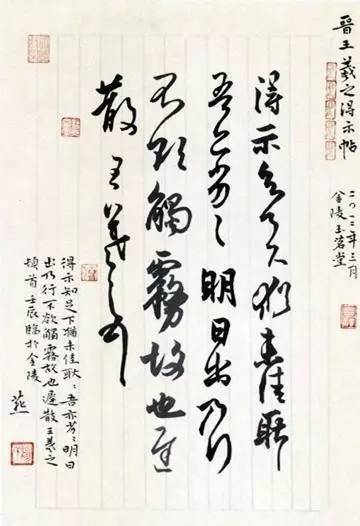 晉王羲之得示帖
二〇一二年三月
金陵玉茗堂
得示知足下猶未佳耿
吾亦劣〻明日出乃行
不欲觸霧故也遲
散王羲之頓首
得示知足下猶未佳耿〻吾亦劣〻明日
出乃行不欲觸霧故也遲散王羲之
頓首壬辰臨於金陵